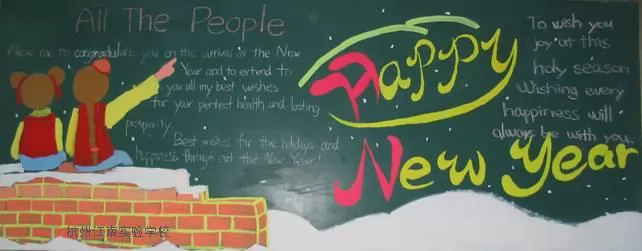 All The People
Allow me to congradulate you on the arrival of the New
Year and to extend to
you all my best wishes
for your perfect health and lasting
prosperity.
Best wishes for the holidays and
happiness through out the New Year!
Happy
New Year
To wish you
joy at this
holy season
Wishing every
happiness will
always be with you.
杭州江南实验学校